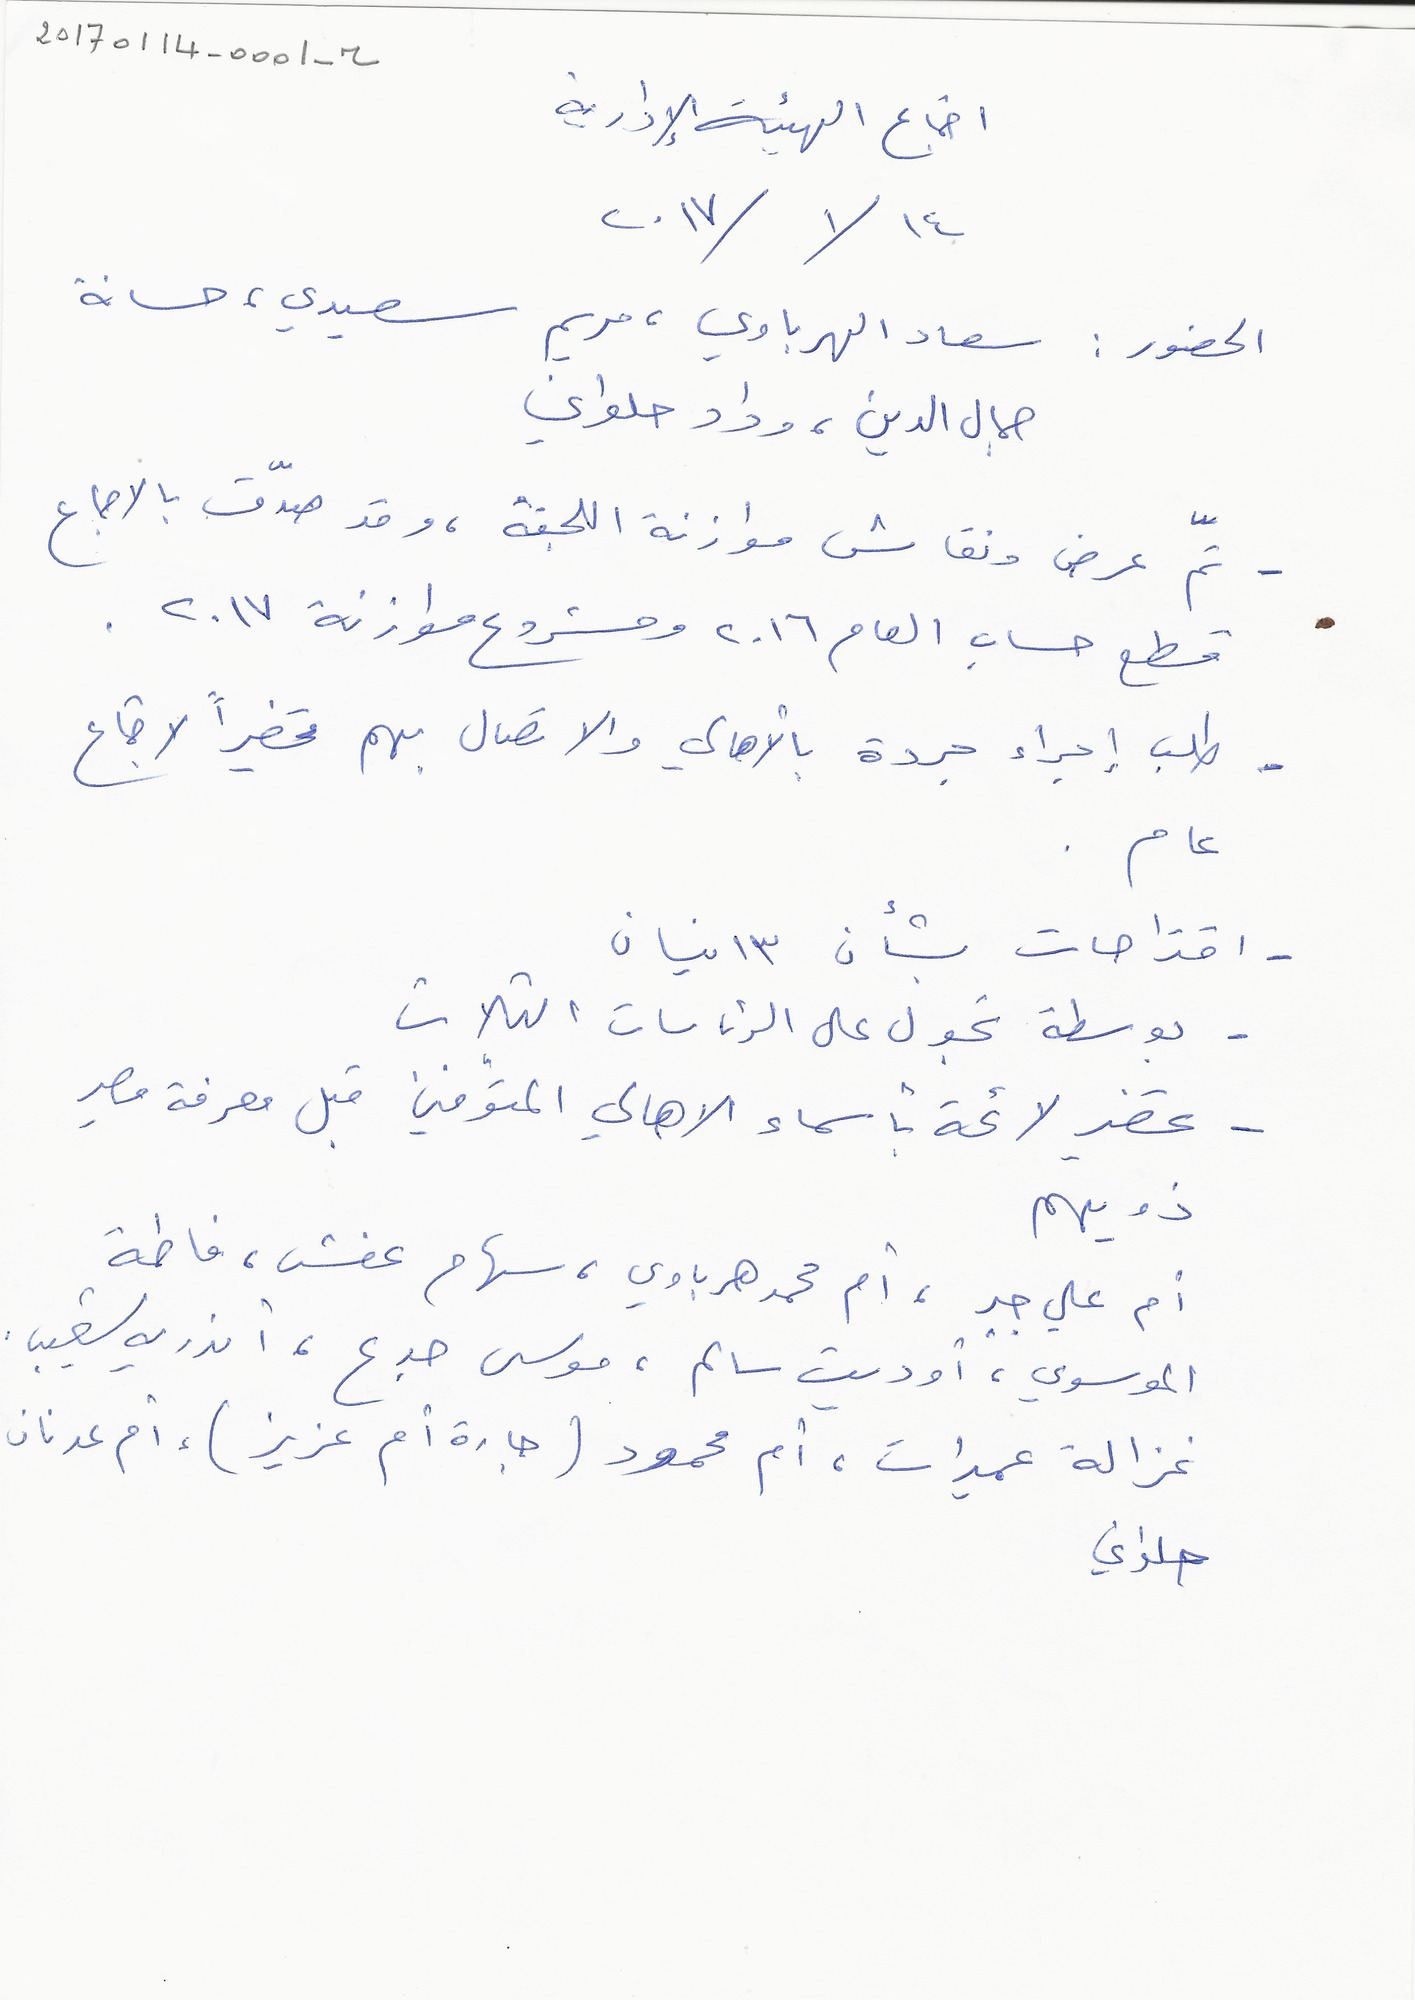 20170114-0001-r
اجتماع الهيئة الإدارية
١٤/ ١/ ٢٠١٧
الحضور : سعاد الهرباوي ، مريم سعيدي ، حسانة
جمال الدين ، وداد حلواني
- تمّ عرض ونقاش موازنة اللجنة ، وقد صدّقت بالاجماع
قطع حساب العام ٢٠١٦ ومشروع موازنة ٢٠١٧ .
- طلب إجراء جردة بالأهالي والاتصال بهم تحضيراً لاجتماع
عام .
- اقتراحات بشأن ١٣ نيسان
- بوسطة تجول على الرئاسات الثلاث
- تحضير لائحة بأسماء الاهالي المتوّفين قبل معرفة مصير
ذويهم
أم علي جبر ، أم محمد هرباوي ، سهام عفش ، فاطمة
الموسوي ، أوديت سالم ، موسى جدع ، أندريه شعيب ،
غزالة عميرات ، أم محمود ( جارة أم عزيز ) ، أم عدنان
حلواني